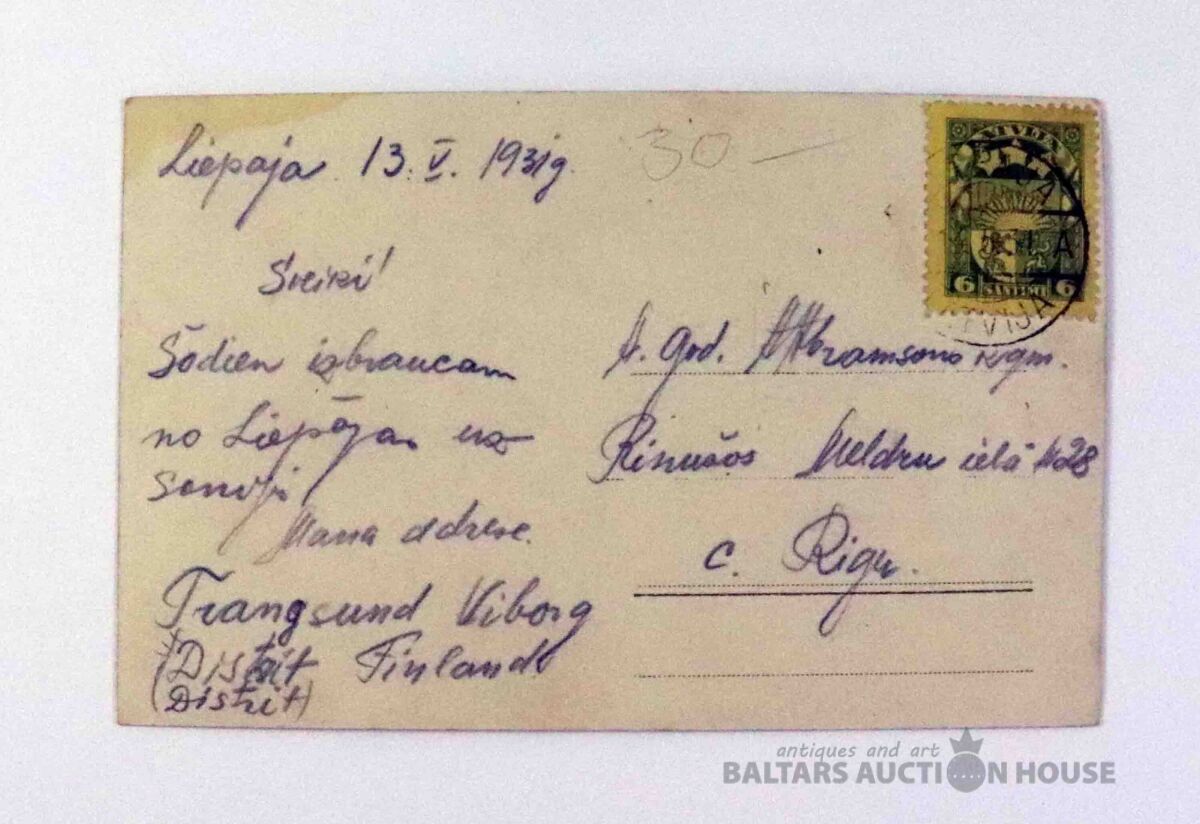 Liepaja. 13. V. 1931g.
30 —
Sveiki!
Šodien izbraucam
no Liepājas uz
somiju
Mana adrese.
Trangsund Viborg
(Distrit Finland
Distrit)
A. god. Abramsona kgm.
Rinužos Meldru ielā №28
c. Rigu.
LATVIJA
6 SANTIMI 6
LATVIJA
antiques and art
BALTARS AUCTION HOUSE